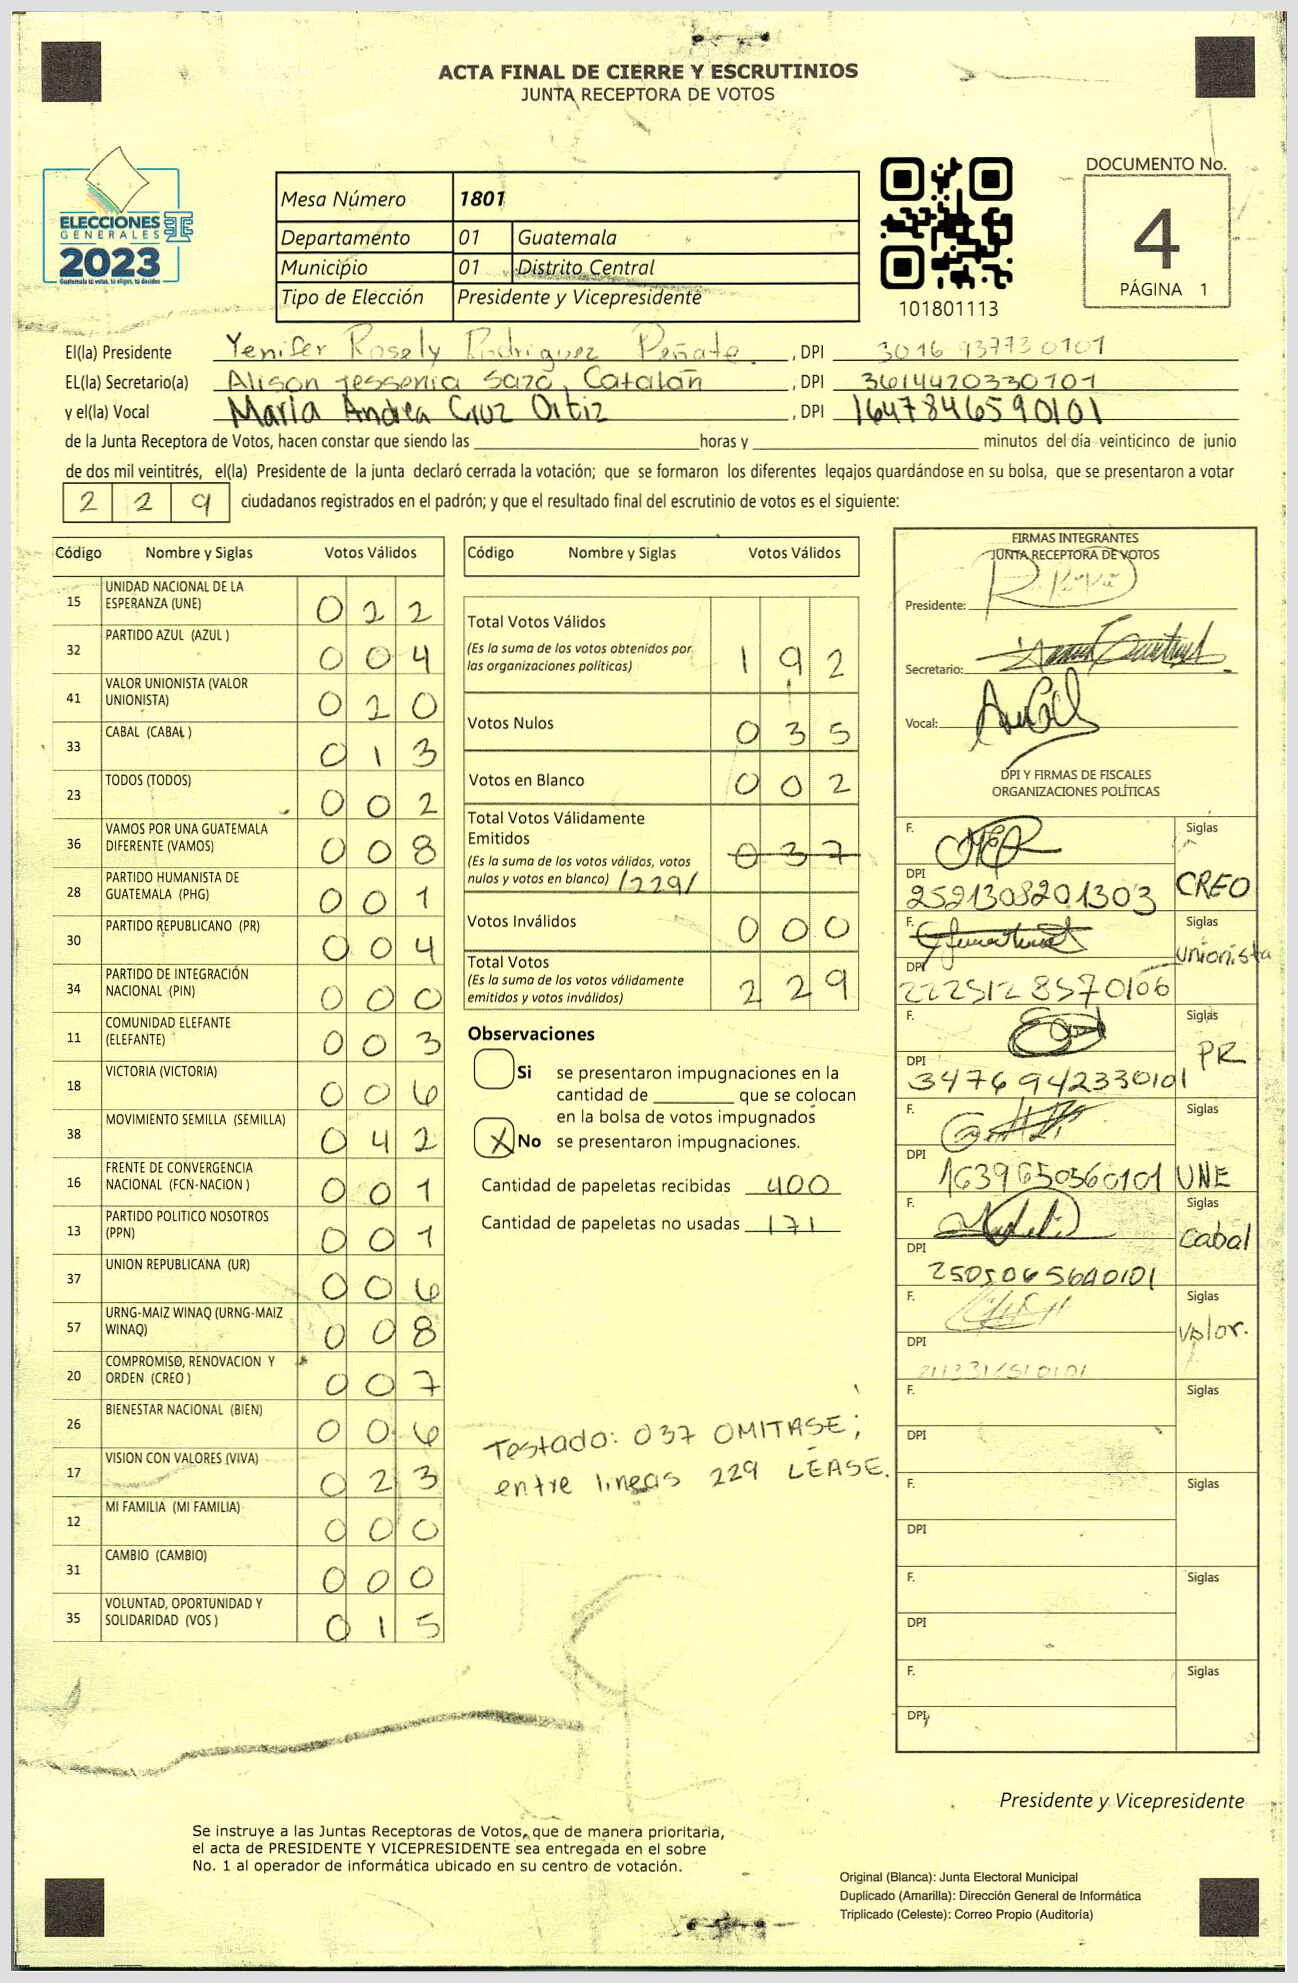 ACTA FINAL DE CIERRE Y ESCRUTINIOS
JUNTA RECEPTORA DE VOTOS
ELECCIONES
GENERALES
2023
Guatemala tú votas, tú eliges, tú decides
Mesa Número 1801
Departamento 01 Guatemala
Municipio 01 Distrito Central
Tipo de Elección Presidente y Vicepresidente
101801113
DOCUMENTO No.
4
PÁGINA 1
El(la) Presidente Yenifer Rosely Rodriguez Peñate , DPI 3016 937730101
EL(la) Secretario(a) Alison Yessenia Sazo Catalán , DPI 3614420330101
y el(la) Vocal María Andrea Cruz Ortiz , DPI 1647846590101
de la Junta Receptora de Votos, hacen constar que siendo las horas y minutos del día veinticinco de junio
de dos mil veintitrés, el(la) Presidente de la junta declaró cerrada la votación; que se formaron los diferentes legajos guardándose en su bolsa, que se presentaron a votar
2 2 9 ciudadanos registrados en el padrón; y que el resultado final del escrutinio de votos es el siguiente:
Código Nombre y Siglas Votos Válidos
15 UNIDAD NACIONAL DE LA
ESPERANZA (UNE) 0 2 2
32 PARTIDO AZUL (AZUL ) 0 0 4
41 VALOR UNIONISTA (VALOR
UNIONISTA) 0 2 0
33 CABAL (CABAL ) 0 1 3
23 TODOS (TODOS) 0 0 2
36 VAMOS POR UNA GUATEMALA
DIFERENTE (VAMOS) 0 0 8
28 PARTIDO HUMANISTA DE
GUATEMALA (PHG) 0 0 1
30 PARTIDO REPUBLICANO (PR) 0 0 4
34 PARTIDO DE INTEGRACIÓN
NACIONAL (PIN) 0 0 0
11 COMUNIDAD ELEFANTE
(ELEFANTE) 0 0 3
18 VICTORIA (VICTORIA) 0 0 6
38 MOVIMIENTO SEMILLA (SEMILLA) 0 4 2
16 FRENTE DE CONVERGENCIA
NACIONAL (FCN-NACION ) 0 0 1
13 PARTIDO POLITICO NOSOTROS
(PPN) 0 0 1
37 UNION REPUBLICANA (UR) 0 0 6
57 URNG-MAIZ WINAQ (URNG-MAIZ
WINAQ) 0 0 8
20 COMPROMISO, RENOVACION Y
ORDEN (CREO ) 0 0 7
26 BIENESTAR NACIONAL (BIEN) 0 0 6
17 VISION CON VALORES (VIVA) 0 2 3
12 MI FAMILIA (MI FAMILIA) 0 0 0
31 CAMBIO (CAMBIO) 0 0 0
35 VOLUNTAD, OPORTUNIDAD Y
SOLIDARIDAD (VOS ) 0 1 5
Código Nombre y Siglas Votos Válidos
Total Votos Válidos
(Es la suma de los votos obtenidos por
las organizaciones políticas) 1 9 2
Votos Nulos 0 3 5
Votos en Blanco 0 0 2
Total Votos Válidamente
Emitidos 0 3 7
(Es la suma de los votos válidos, votos
nulos y votos en blanco) /229/
Votos Inválidos 0 0 0
Total Votos
(Es la suma de los votos válidamente
emitidos y votos inválidos) 2 2 9
Observaciones
Si se presentaron impugnaciones en la
cantidad de que se colocan
en la bolsa de votos impugnados
X No se presentaron impugnaciones.
Cantidad de papeletas recibidas 400
Cantidad de papeletas no usadas 171
Testado: 037 OMITASE;
entre lineas 229 LEASE.
FIRMAS INTEGRANTES
JUNTA RECEPTORA DE VOTOS
Presidente:
Secretario:
Vocal:
DPI Y FIRMAS DE FISCALES
ORGANIZACIONES POLÍTICAS
F. Siglas
DPI 2521308201303 CREO
F. Siglas
DPI 2225128570106 Unionista
F. Siglas
DPI 3476942330101 PR
F. Siglas
DPI 1639650560101 UNE
F. Siglas
DPI 2505065640101 Cabal
F. Siglas
DPI Valor.
F. Siglas
DPI
F. Siglas
DPI
F. Siglas
DPI
F. Siglas
DPI
Presidente y Vicepresidente
Se instruye a las Juntas Receptoras de Votos, que de manera prioritaria,
el acta de PRESIDENTE Y VICEPRESIDENTE sea entregada en el sobre
No. 1 al operador de informática ubicado en su centro de votación.
Original (Blanca): Junta Electoral Municipal
Duplicado (Amarilla): Dirección General de Informática
Triplicado (Celeste): Correo Propio (Auditoría)